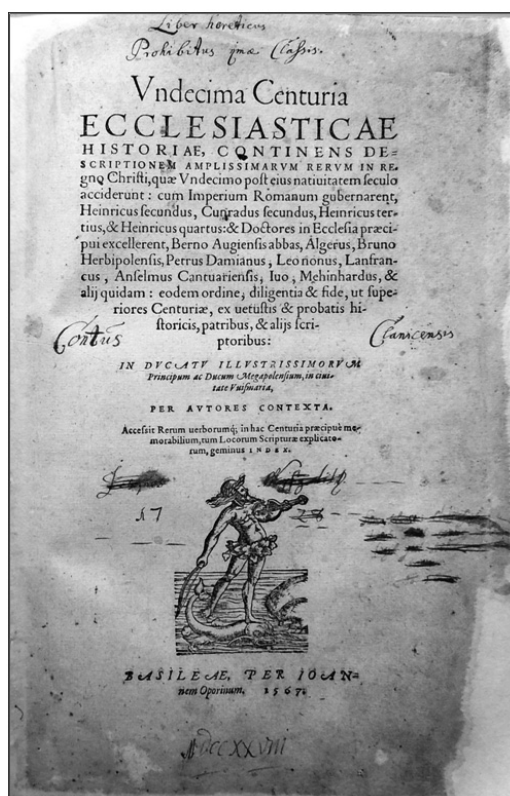 Liber hæreticus
Prohibitus primæ Classis.
Vndecima Centuria
ECCLESIASTICAE
HISTORIAE, CONTINENS DE=
SCRIPTIONEM AMPLISSIMARVM RERVM IN RE-
gno Christi, quæ Vndecimo post eius natiuitatem seculo
acciderunt: cum Imperium Romanum gubernarent,
Heinricus secundus, Cunradus secundus, Heinricus ter-
tius, & Heinricus quartus: & Doctores in Ecclesia præci-
pui excellerent, Berno Augiensis abbas, Algerus, Bruno
Herbipolensis, Petrus Damianus, Leo nonus, Lanfran-
cus, Anselmus Cantuariensis, Iuo, Mehinhardus, &
alij quidam: eodem ordine, diligentia & fide, ut supe-
riores Centuriæ, ex uetustis & probatis hi-
storicis, patribus, & alijs scri-
ptoribus:
Contus Clanicensis
IN DVCATV ILLVSTRISSIMORVM
Principum ac Ducum Megapolensium, in ciui-
tate Vuismaria,
PER AVTORES CONTEXTA.
Accessit Rerum uerborumq; in hac Centuria præcipuè me-
morabilium, tum Locorum Scripturæ explicato-
rum, geminus INDEX.
17
BASILEAE, PER IOAN=
nem Oporinum. 1567.
MDCCXXVIII